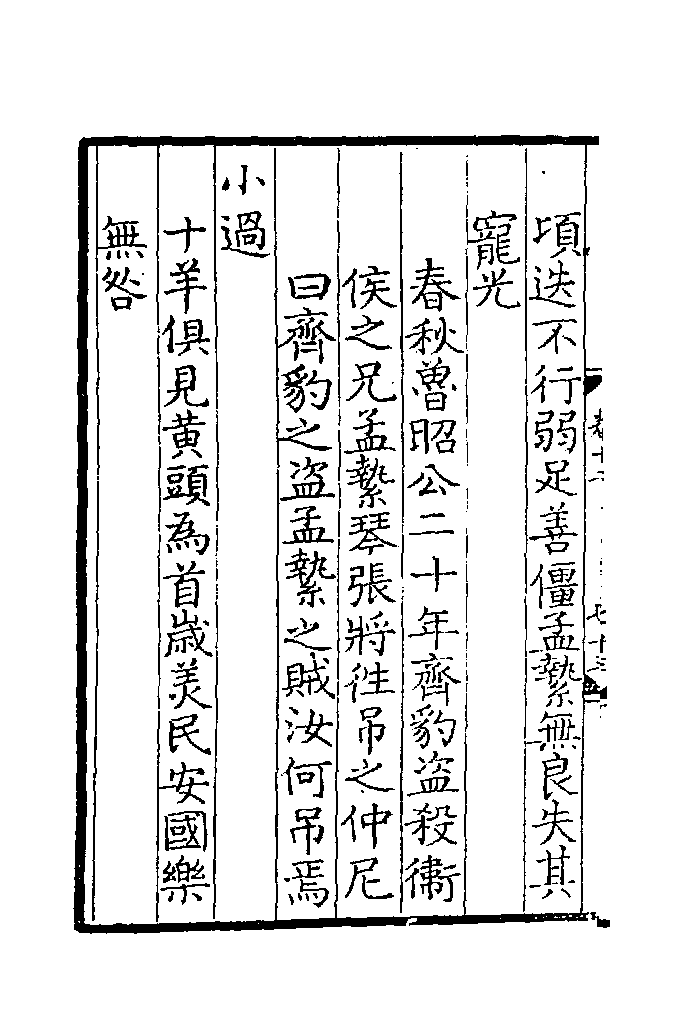 頃迭不行弱足善僵孟縶無良失其
寵光
春秋魯昭公二十年齊豹盗殺衛
侯之兄孟縶琴張將往吊之仲尼
曰齊豹之盗孟縶之賊汝何吊焉
小過
十羊俱見黄頭為首歳美民安國樂
無咎